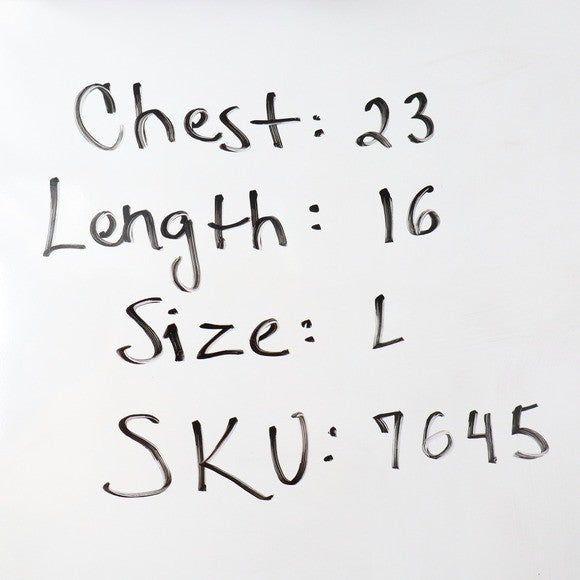 Chest: 23
Length: 16
Size: L
SKU: 7645